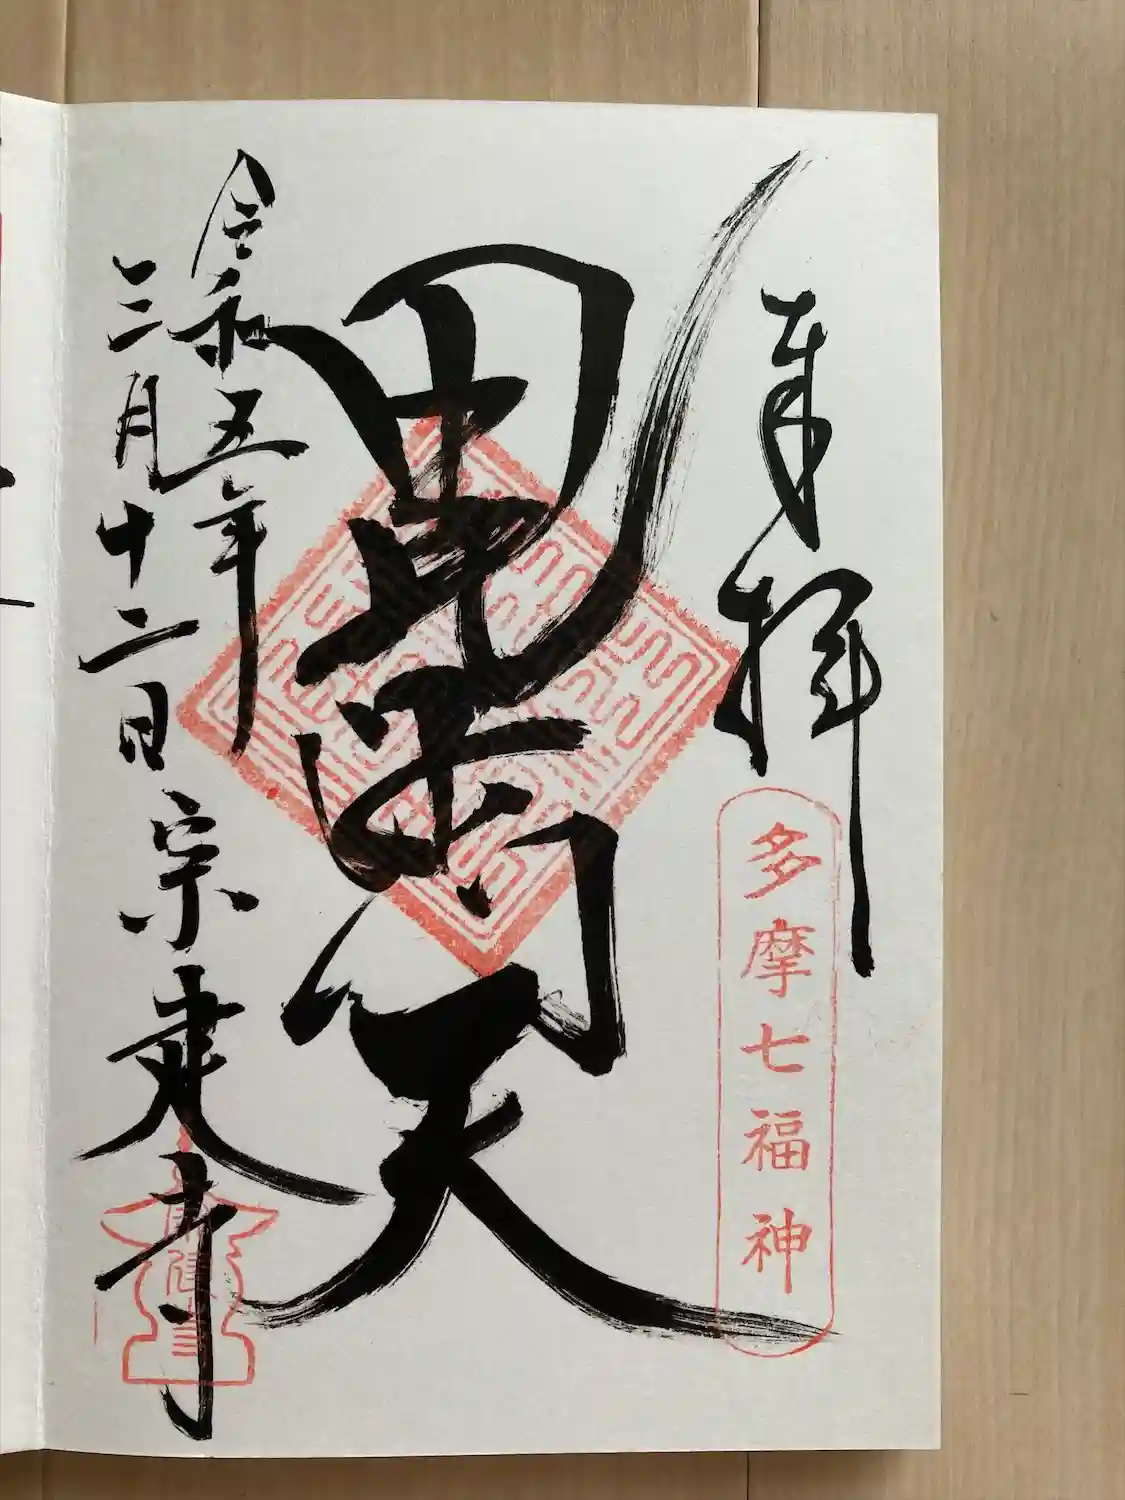 奉拝
多摩七福神
毘沙門天
令和五年
三月十二日
宗建寺